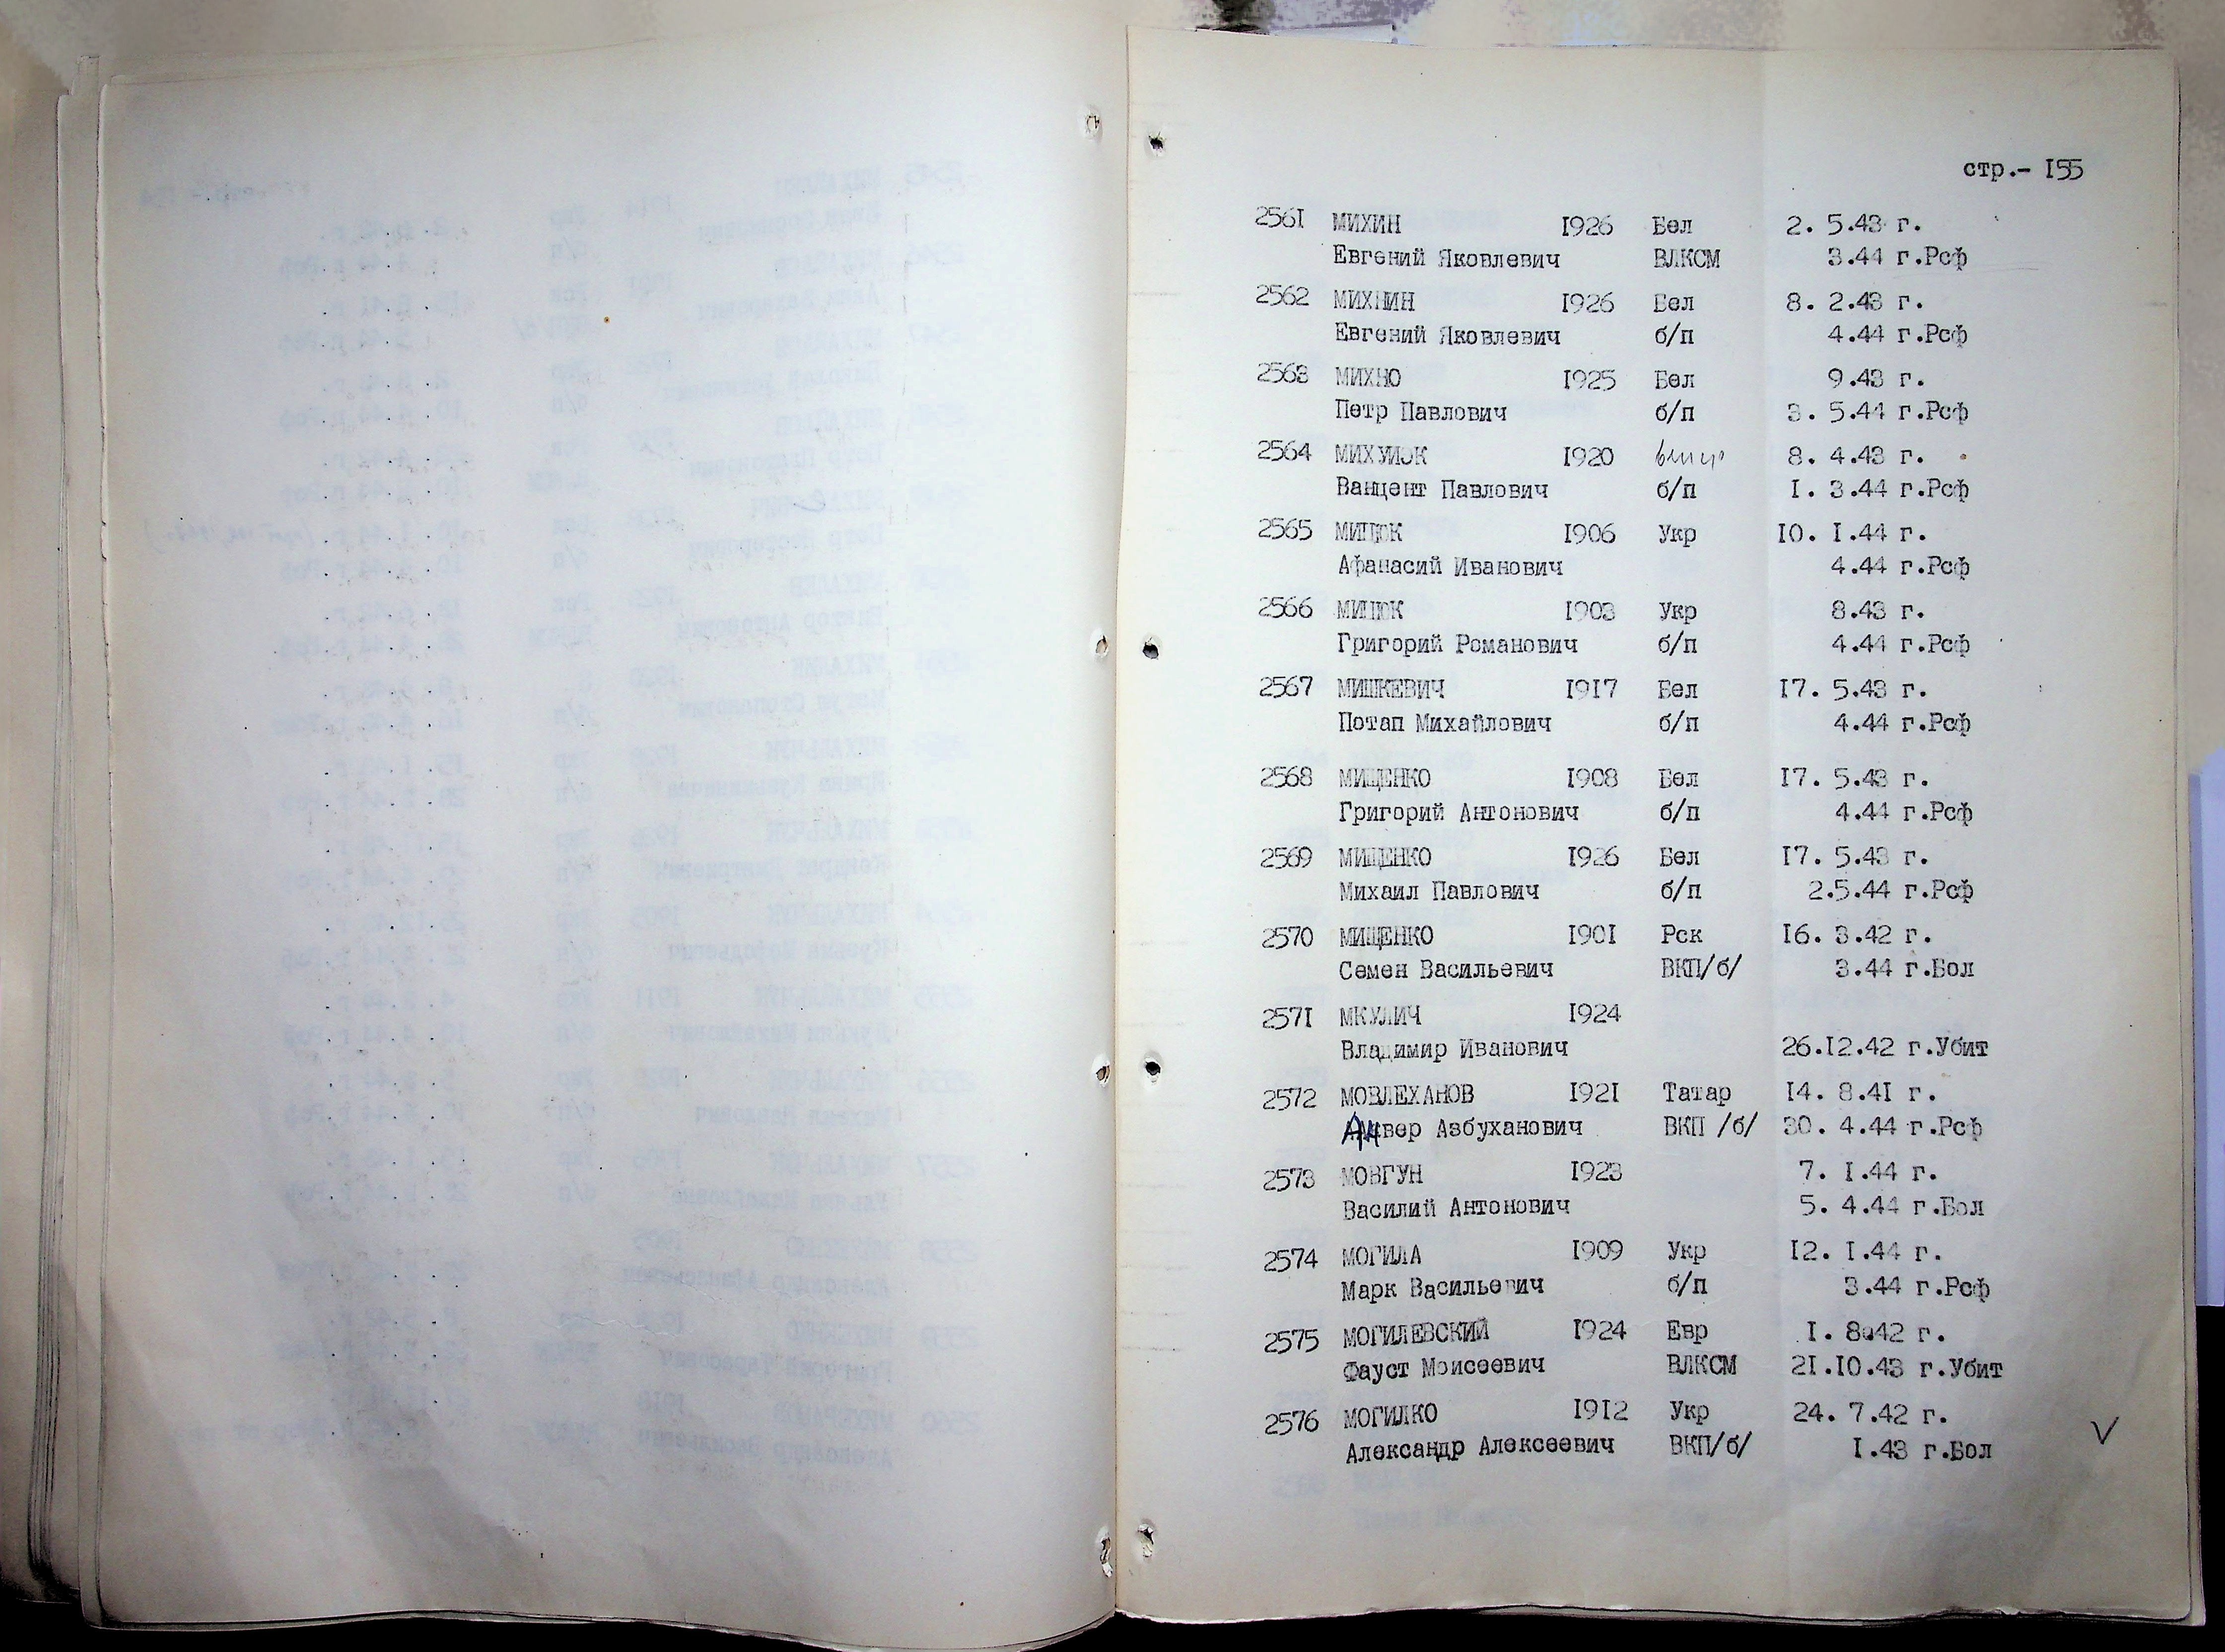 стр.- I55
256I МИХИН I926 Бел 2. 5.43 г.
Евгений Яковлевич ВЛКСМ 3.44 г.Рсф
2562 МИХНИН I926 Бел 8. 2.43 г.
Евгений Яковлевич б/п 4.44 г.Рсф
2563 МИХНО I925 Бел 9.43 г.
Петр Павлович б/п 3. 5.44 г.Рсф
2564 I920 8. 4.43 г.
Ванцент Павлович б/п I. 3.44 г.Рсф
2565 I906 Укр I0. I.44 г.
Афанасий Иванович 4.44 г.Рсф
2566 I903 Укр 8.43 г.
Григорий Романович б/п 4.44 г.Рсф
2567 МИШКЕВИЧ I9I7 Бел I7. 5.43 г.
Потап Михайлович б/п 4.44 г.Рсф
2568 МИЩЕНКО I908 Бел I7. 5.43 г.
Григорий Антонович б/п 4.44 г.Рсф
2569 МИЩЕНКО I926 Бел I7. 5.43 г.
Михаил Павлович б/п 2.5.44 г.Рсф
2570 МИЩЕНКО I90I Рск I6. 3.42 г.
Семен Васильевич ВКП/б/ 3.44 г.Бол
257I МКУЛИЧ I924
Владимир Иванович 26.I2.42 г.Убит
2572 МОВЛЕХАНОВ I92I Татар I4. 8.4I г.
Анвер Азбуханович ВКП /б/ 30. 4.44 г.Рсф
2573 МОВГУН I923 7. I.44 г.
Василий Антонович 5. 4.44 г.Бол
2574 МОГИЛА I909 Укр I2. I.44 г.
Марк Васильевич б/п 3.44 г.Рсф
2575 МОГИЛЕВСКИЙ I924 Евр I. 8.42 г.
Фауст Моисеевич ВЛКСМ 2I.I0.43 г.Убит
2576 МОГИЛКО I9I2 Укр 24. 7.42 г.
Александр Алексеевич ВКП/б/ I.43 г.Бол